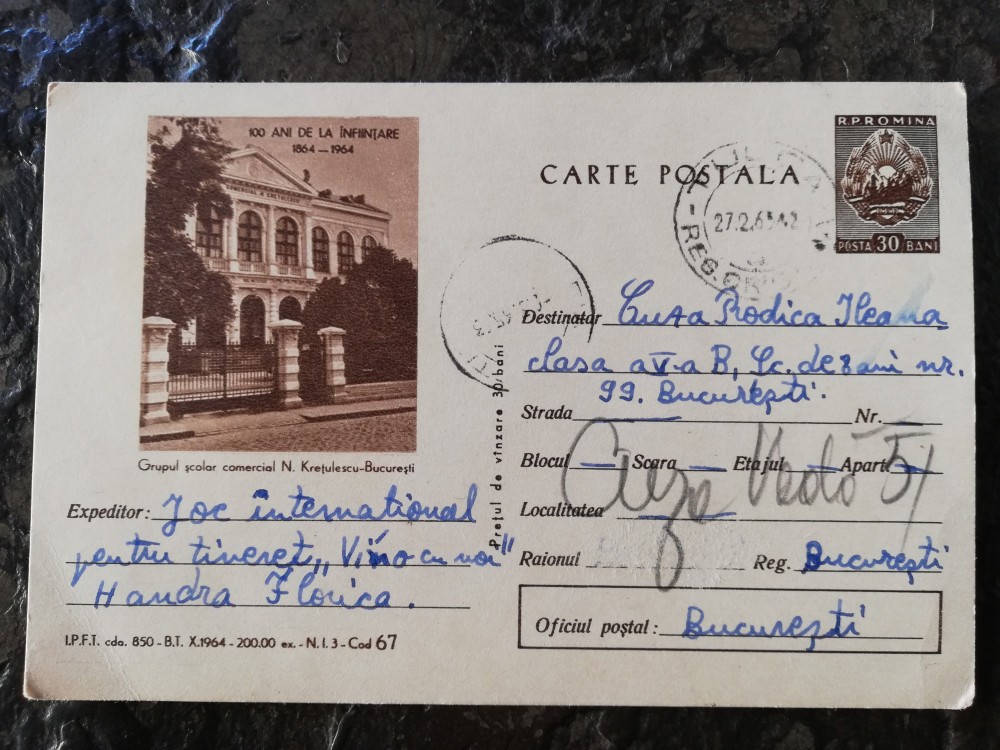 100 ANI DE LA ÎNFIINȚARE
1864 – 1964
Grupul școlar comercial N. Krețulescu-București
Expeditor: Joc internațional
pentru tineret, „Vino cu noi"
Handra Florica.
I.P.F.T. cda. 850 - B.T. X.1964 - 200.00 ex. - N. I. 3 - Cod 67
Prețul de vînzare 30 bani
CARTE POSTALA
R.P.ROMINA
POSTA 30 BANI
27.2.65
REG.
Destinatar Cuza Rodica Ileana
clasa a V-a B, Șc. de 8 ani nr.
99. București.
Strada Nr.
Blocul Scara Etajul Apart.
Localitatea
Raionul Reg. București
Oficiul poștal: București